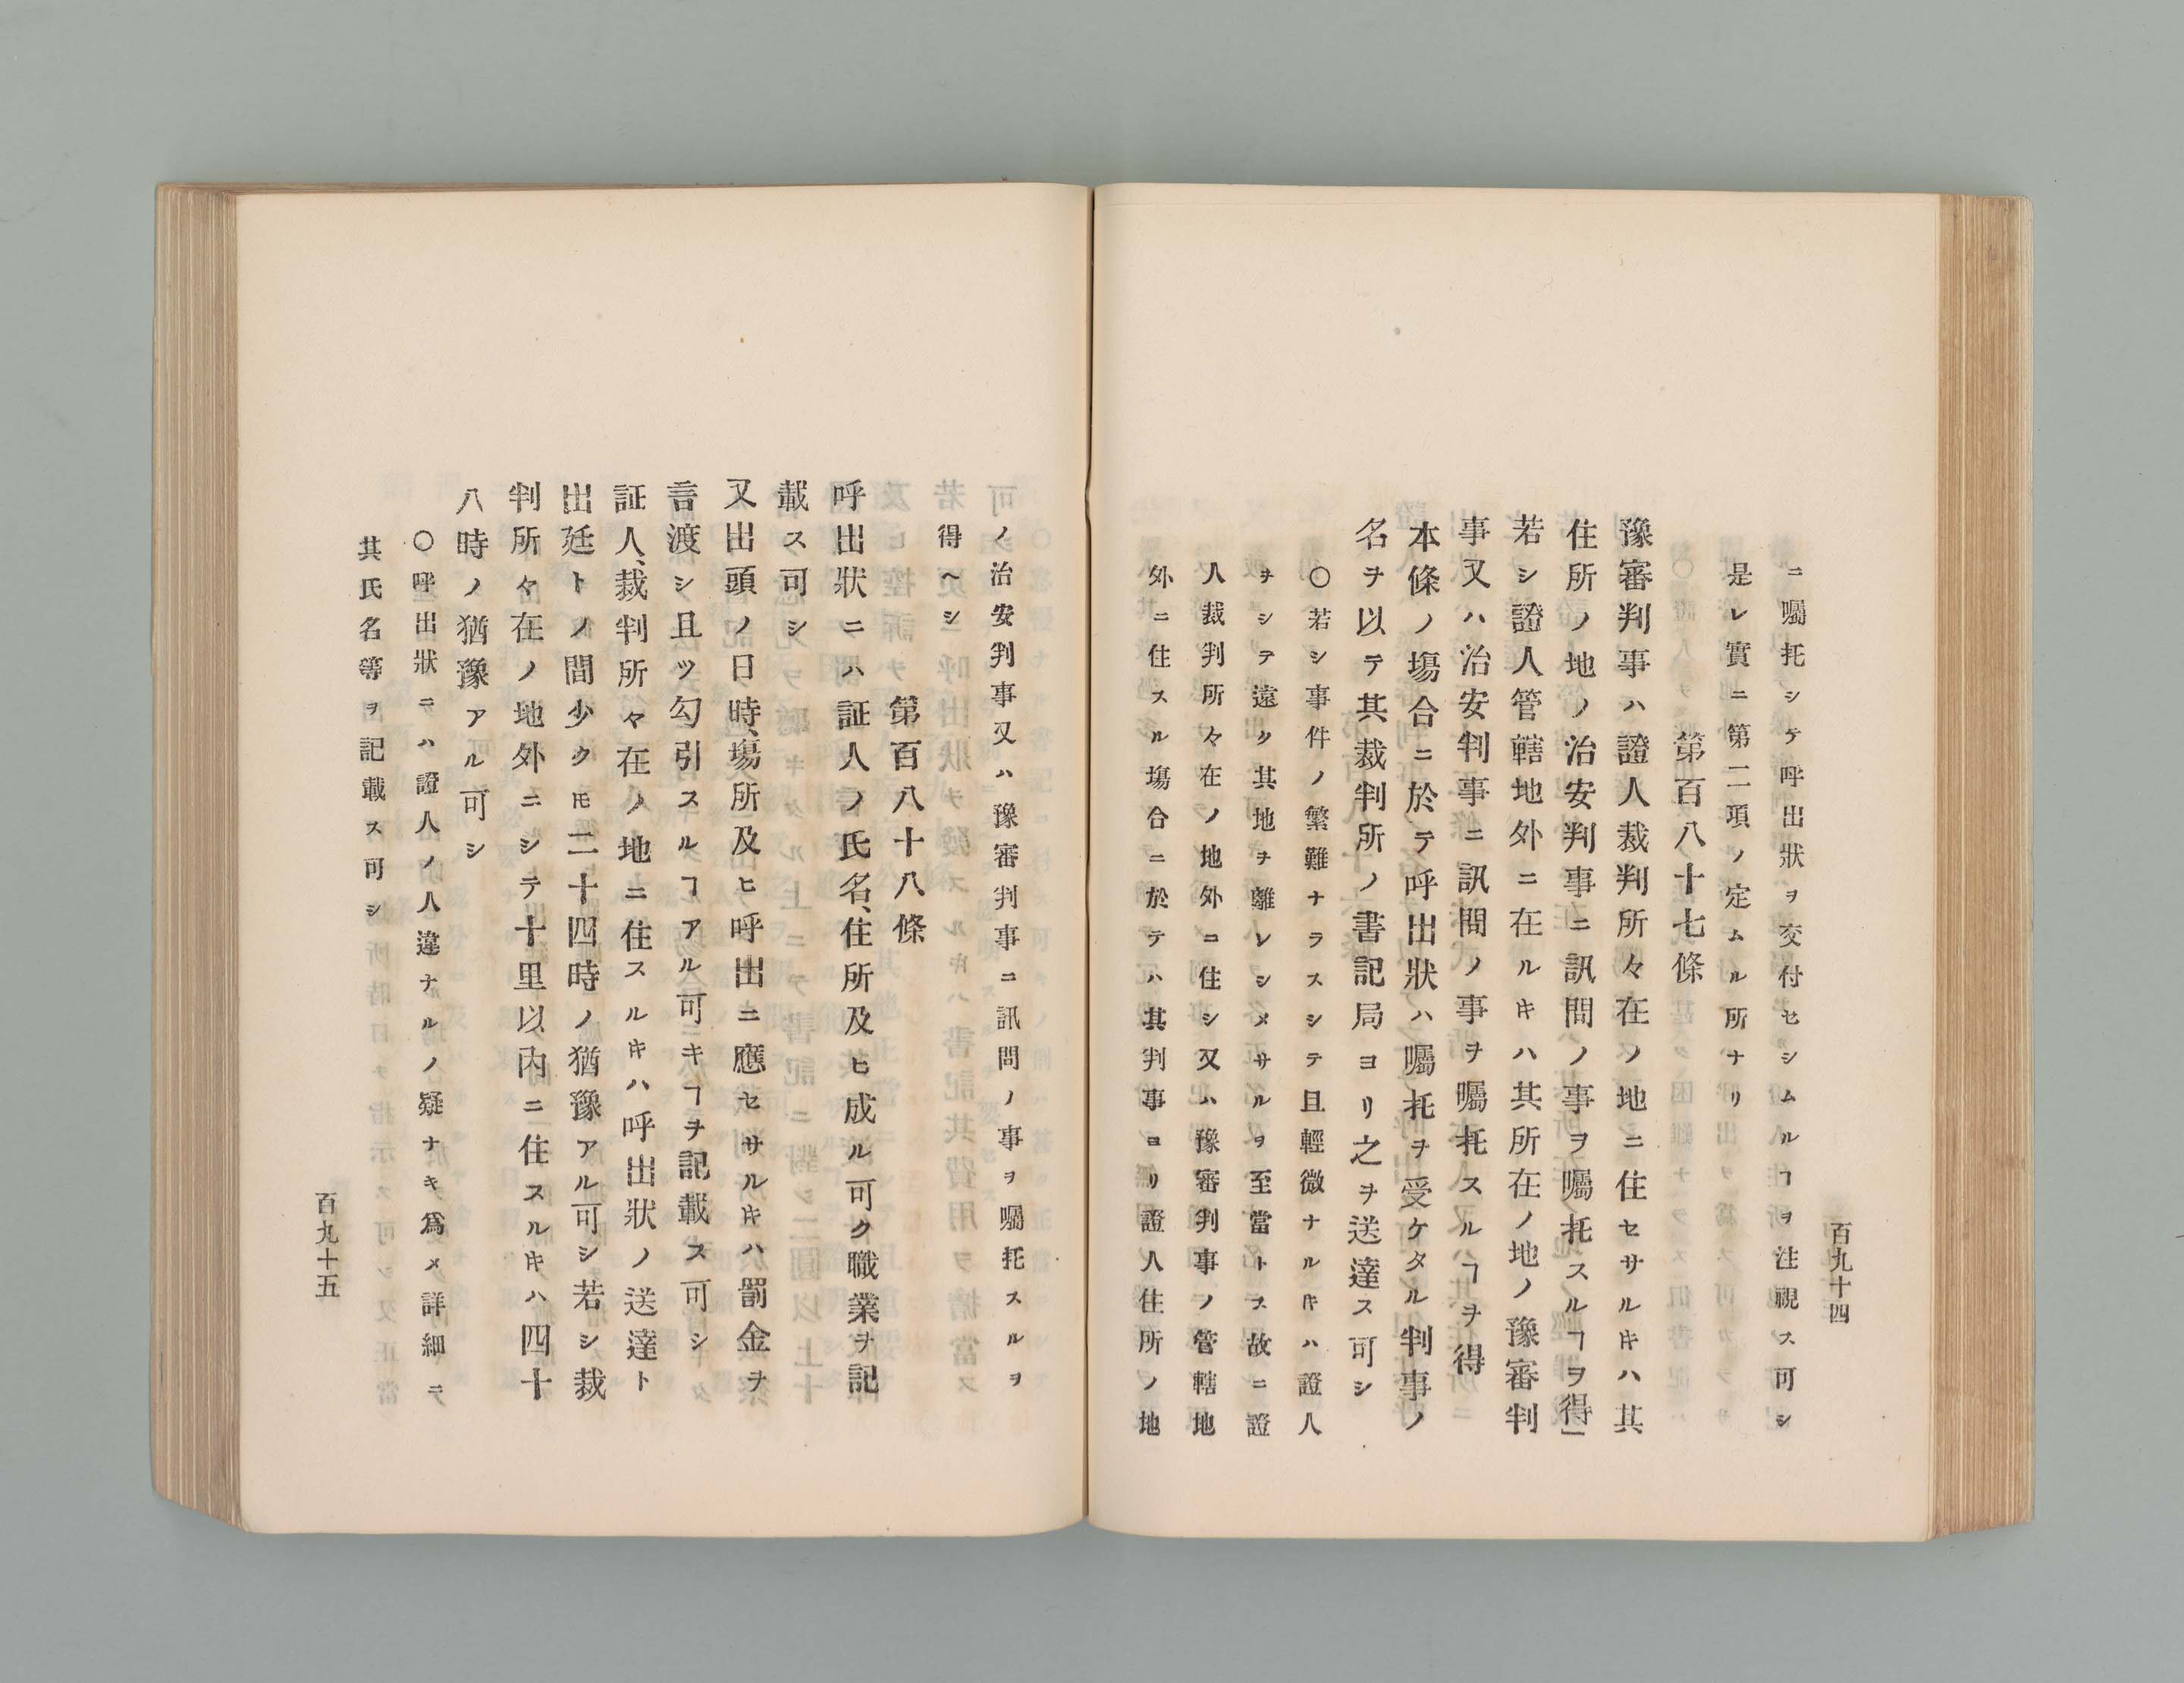 百九十四
ニ囑托シテ呼出狀ヲ交付セシムルヿヲ注視ス可シ
是レ實ニ第二項ノ定ムル所ナリ
第百八十七條
豫審判事ハ證人裁判所々在ノ地ニ住セサルキハ其
住所ノ地ノ治安判事ニ訊問ノ事ヲ囑托スルヿヲ得
若シ證人管轄地外ニ在ルキハ其所在ノ地ノ豫審判
事又ハ治安判事ニ訊問ノ事ヲ囑托スルヿヲ得
本條ノ塲合ニ於テ呼出狀ハ囑托ヲ受ケタル判事ノ
名ヲ以テ其裁判所ノ書記局ヨリ之ヲ送達ス可シ
〇若シ事件ノ繁難ナラスシテ且輕微ナルキハ證人
ヲシテ遠ク其地ヲ離レシメサルヲ至當トス故ニ證
人裁判所々在ノ地外ニ住シ又ハ豫審判事ノ管轄地
外ニ住スル塲合ニ於テハ其判事ヨリ證人住所ノ地
ノ治安判事又ハ豫審判事ニ訊問ノ事ヲ囑托スルヲ
得ヘシ
第百八十八條
呼出狀ニハ証人ノ氏名、住所及ヒ成ル可ク職業ヲ記
載ス可シ
又出頭ノ日時、塲所及ヒ呼出ニ應セサルキハ罰金ヲ
言渡シ且ツ勾引スルヿアル可キヿヲ記載ス可シ
証人、裁判所々在ノ地ニ住スルキハ呼出狀ノ送達ト
出廷トノ間少クモ二十四時ノ猶豫アル可シ若シ裁
判所々在ノ地外ニシテ十里以內ニ住スルキハ四十
八時ノ猶豫アル可シ
〇呼出狀ニハ證人ノ人違ナルノ疑ナキ爲メ詳細ニ
其氏名等ヲ記載ス可シ
百九十五